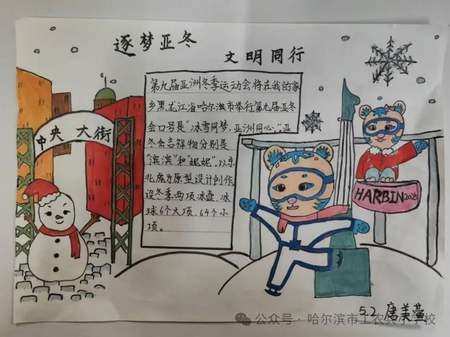 逐梦亚冬
文明同行
第九届亚洲冬季运动会将在我的家
乡黑龙江省哈尔滨市举行第九届亚冬
会口号是“冰雪同梦，亚洲同心”，亚
冬会吉祥物分别是
“滨滨”和“妮妮”，以东
北虎为原型设计创作
设冬季两项、冰壶、冰
球6个大项，64个小
项。
中央大街
HARBIN 2025
5.2 唐美萱
公众号·哈尔滨市工农兵小学校